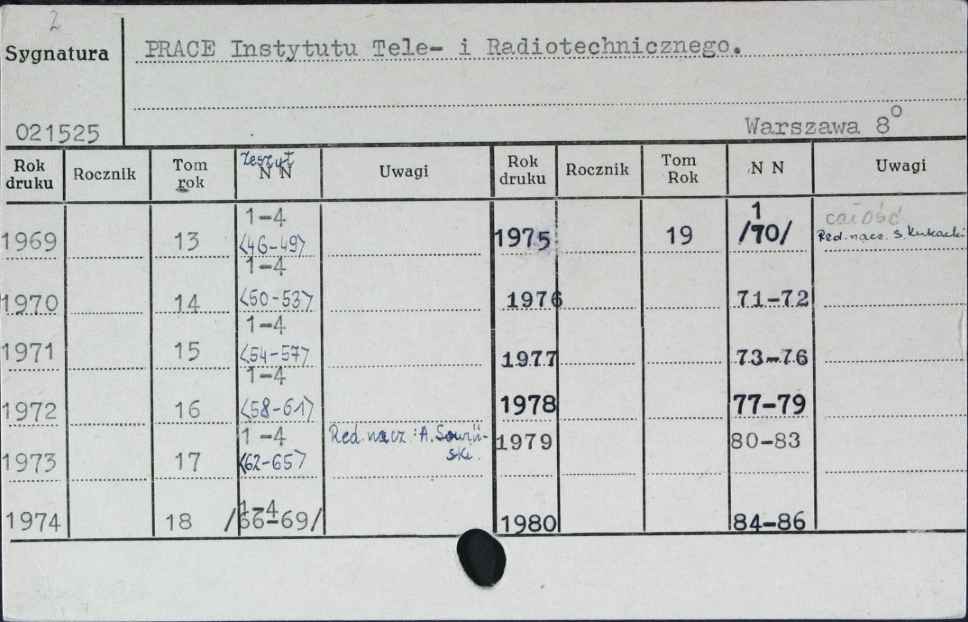 2
Sygnatura
PRACE Instytutu Tele- i Radiotechnicznego.
021525
Warszawa 8°
Rok druku Rocznik Tom rok Zeszyt N N Uwagi Rok druku Rocznik Tom Rok N N Uwagi
1969 13 1-4 <46-49> 1975 19 1 /70/ całość Red. nacz. S. Kukacki
1970 14 1-4 <50-53> 1976 71-72
1971 15 1-4 <54-57> 1977 73-76
1972 16 1-4 <58-61> 1978 77-79
1973 17 1-4 <62-65> Red. nacz: A. Sowiń-ski. 1979 80-83
1974 18 1-4 /66-69/ 1980 84-86